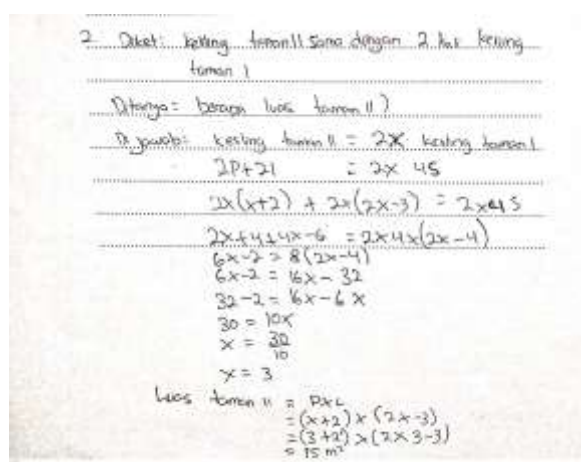 2 Diket: keliling taman II sama dengan 2 kali keliling
taman I
Ditanya= berapa luas taman II?
Di jawab: keliling taman II = 2X keliling taman I
2P+2l = 2x 4S
2x(x+2) + 2x(2x-3) = 2x4S
2x+4+4x-6 = 2x4x(2x-4)
6x-2 = 8(2x-4)
6x-2 = 16x-32
32-2 = 16x-6x
30 = 10x
x = 30/10
x = 3
Luas taman II = PxL
= (x+2)x(2x-3)
= (3+2)x(2x3-3)
= 15 m²